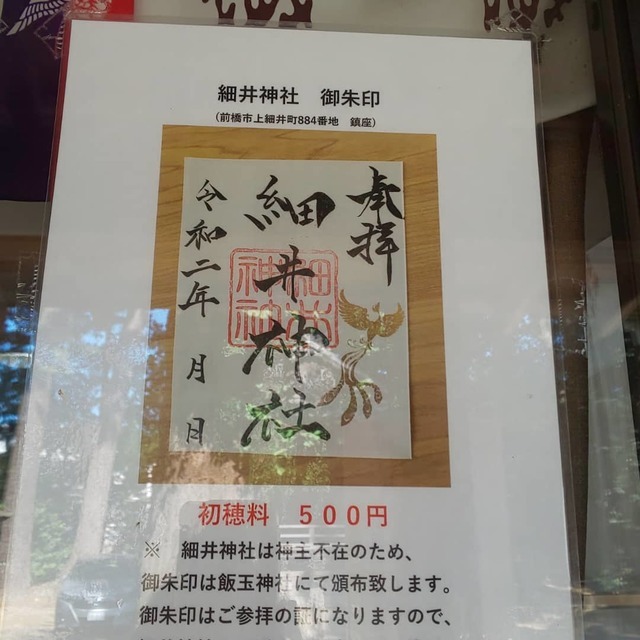 細井神社　御朱印
(前橋市上細井町884番地　鎮座)
奉拝
細井神社
細井
神社
令和二年　月　日
初穂料　５００円
※　細井神社は神主不在のため、
御朱印は飯玉神社にて頒布致します。
御朱印はご参拝の証になりますので、